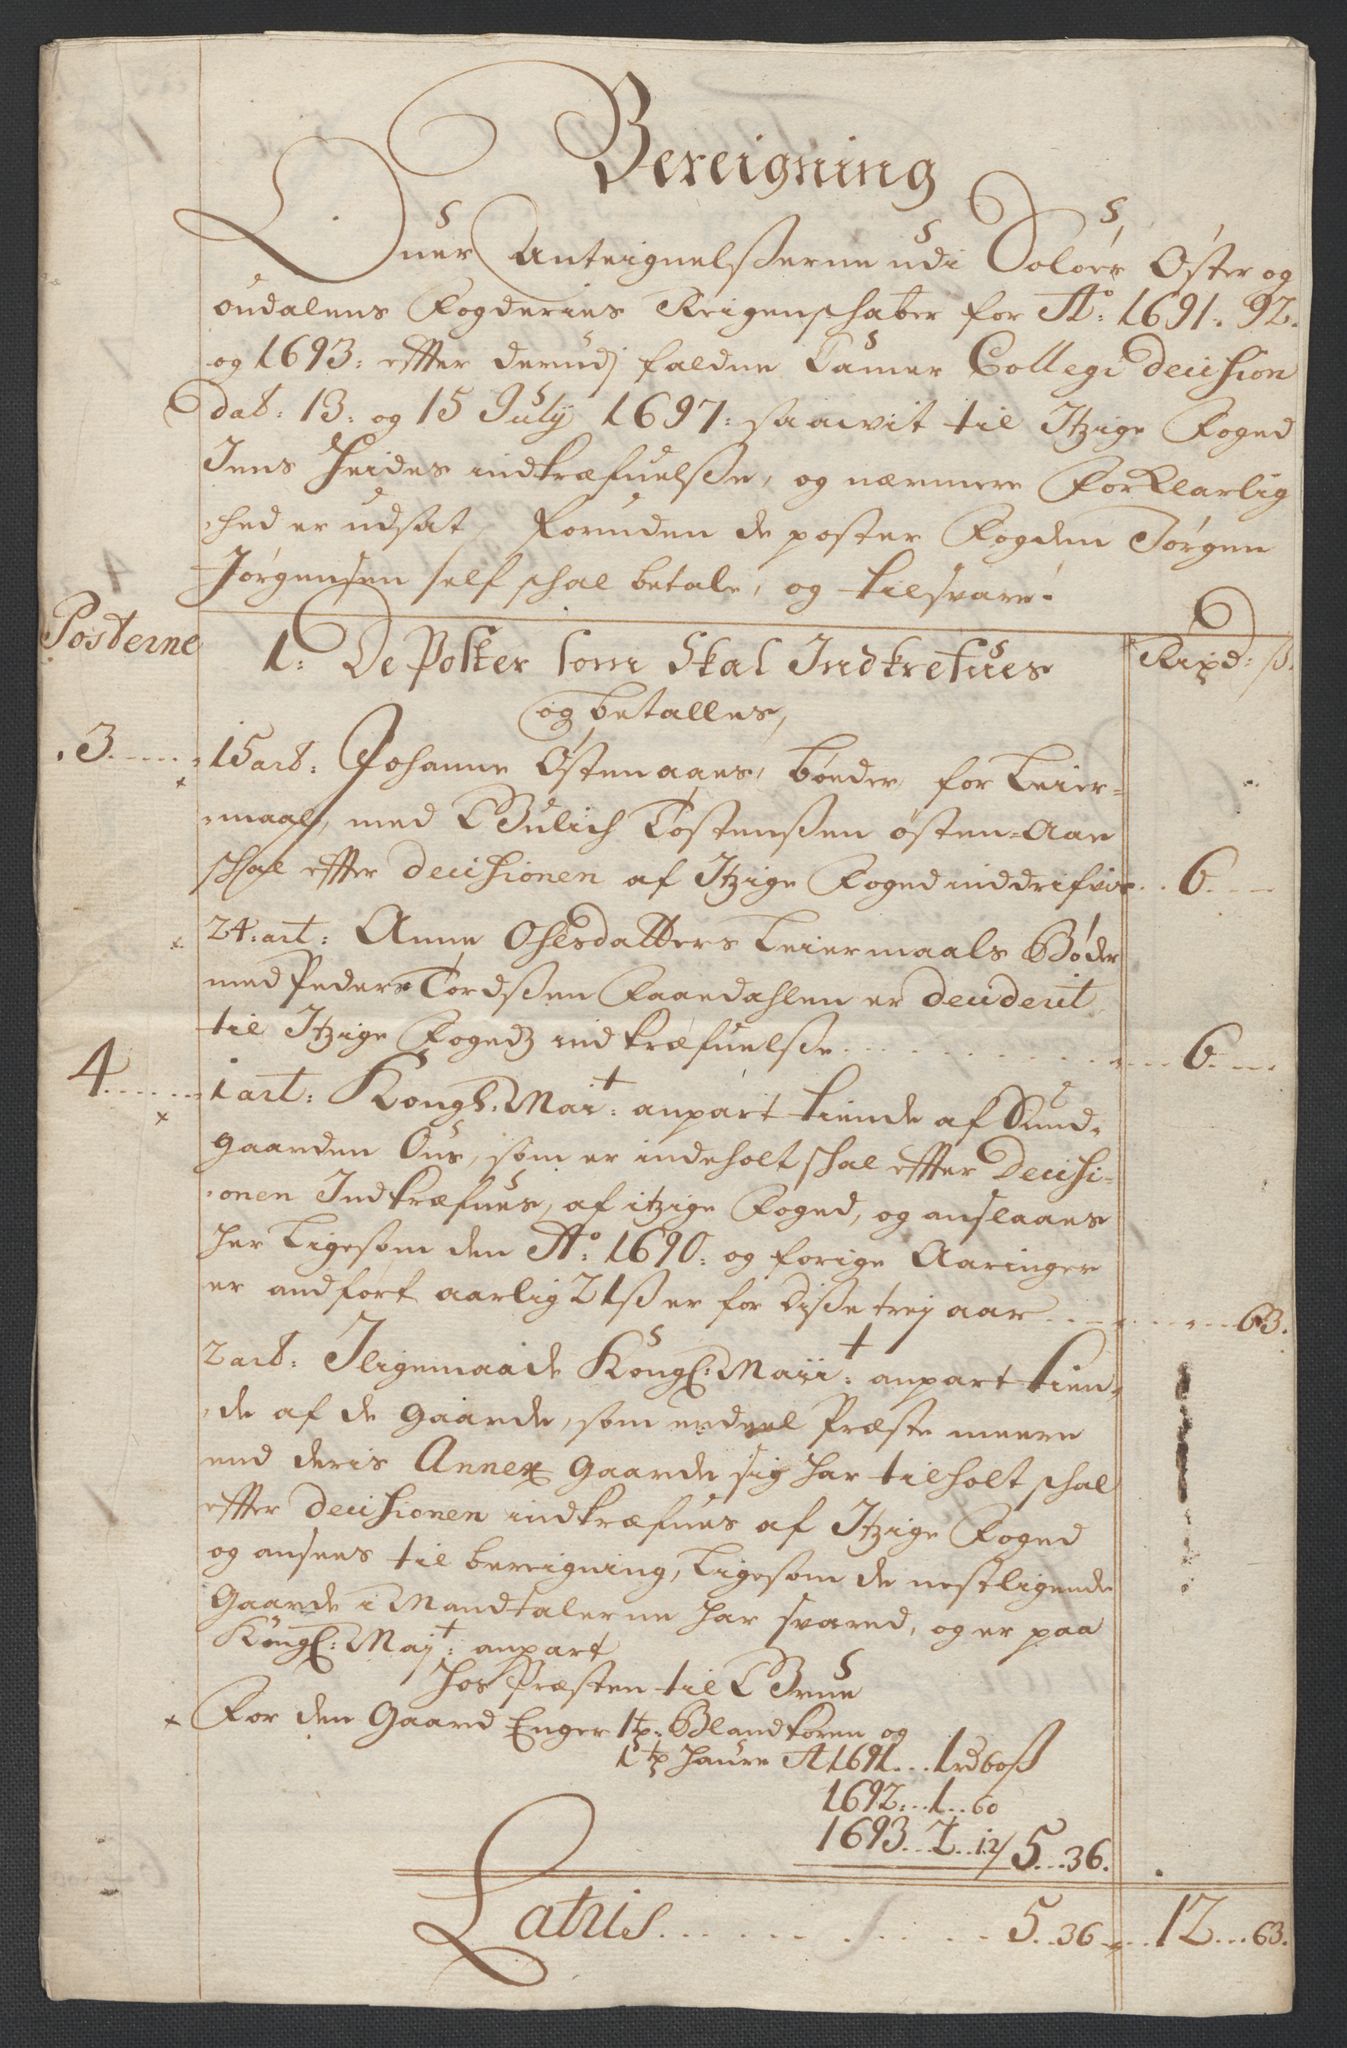 Bereigning
Ofuer Anteignelsserne udi Soløer Øster og
Oudalens Fogderies Reigenschaber for Ao: 1691: 92.
og 1693: effter derudj faldne Camer Collegi Decision
dat: 13: og 15 July 1697: saawit til Itzige Foged
Jens Heides indkræfuelsse, og nærmere Forklarlig
hed er udsat, foruden de poster Fogden Jørgen
Jørgensen self schal betale, og tilsvare.
Posterne
1: De Poster som Skal Indkrefues
Rixd: ß.
og betalles,
3. 15 art: Johanne Østenaaes, bøeder for Leier-
maal, med Gulich Tostenssen østen-Aae
schal effter Decisionen af Itzige Foged inddrifvis . . 6. . .
24: art: Anne Olesdatters Leiermaals Bøder
med Peder Tordssen Faaedahlen er decideret
til Itzige Fogedz indkræfuelsse . . . 6. . .
4 1 art: Kongl. Mait: anpart tiende af Sund-
gaarden Ous, som er indeholt schal effter Decisi-
onen Indkræfues, af itzige Foged, og anslaaes
her Ligesom den Ao: 1690: og forige Aaringer
er andført aarlig 21 ß er for disse trej aar . . . 63.
2 art: Iligemaade Kongl: Maiit: anpart tien-
de af de Gaarde, som endeel Præste meere
end deris Annex Gaarde sig har tilholt schal
effter Decisionen indkræfues af Itzige Foged
og ansees til bereigning, Ligesom de nestligende
Gaarde i Mandtalerne har svared, og er paa
Kongl: Majt: anpart
Hos Præsten til Grue
For den Gaard Enger 1 tp: Blandkoren og
1 tp Haure A 1691 . . . 1 rd 60 ß
1692: . . 1 . . 60
1693 . . 2 . . 12 / 5 . . 36.
Latris . . . 5 . . 36 . . . 12 . . . 63.